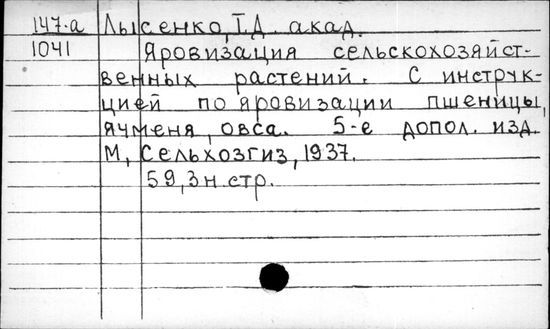 147-а Лысенко, Т.Д. акад.
1041 Яровизация сельскохозяйст-
венных растений. С инструк-
цией по яровизации пшеницы,
ячменя, овса. 5-е допол. изд.
М, Сельхозгиз, 1937.
59, 3 н. стр.